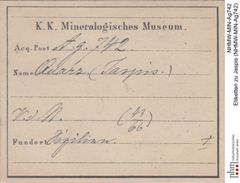 K. K. Mineralogisches Museum.
Acq. Post A. g. 742
Name Quarz (Jaspis.)
V. d. N.
Fundort Sizilien
NHMW-MIN-Ag742
Etiketten zu Jaspis (NHMW-MIN-Ag742)
nhm